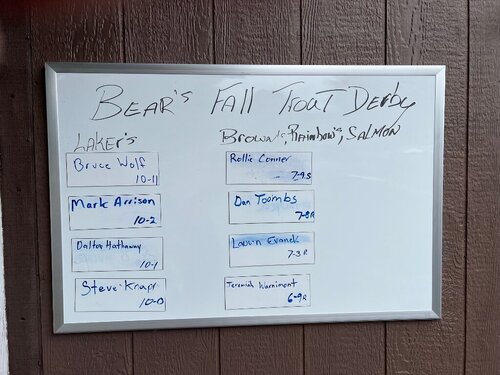 BEAR'S FALL TROUT DERBY
LAKER'S
Bruce Wolf
10-11
Mark Arrison
10-2
Dalton Hathaway
10-1
Steve Knapp
10-0
BROWN'S, RAINBOW'S, SALMON
Rollie Conner
7-9 S
Dan Toombs
7-8 R
Evanek
7-3 R
Jeremiah Warnimont
6-9 R